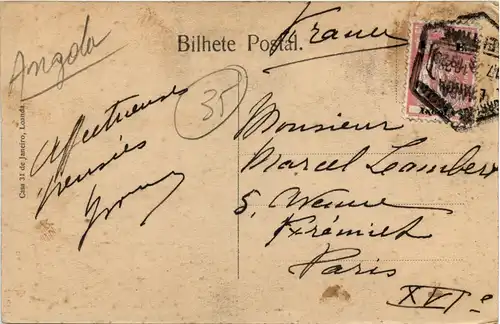 Angola
Bilhete Postal.
France
35
Affectueuses
pensées
Monsieur
Marcel Lambert
5, Avenue
Frémiet
Paris
XVIe
Casa 31 de Janeiro, Loanda